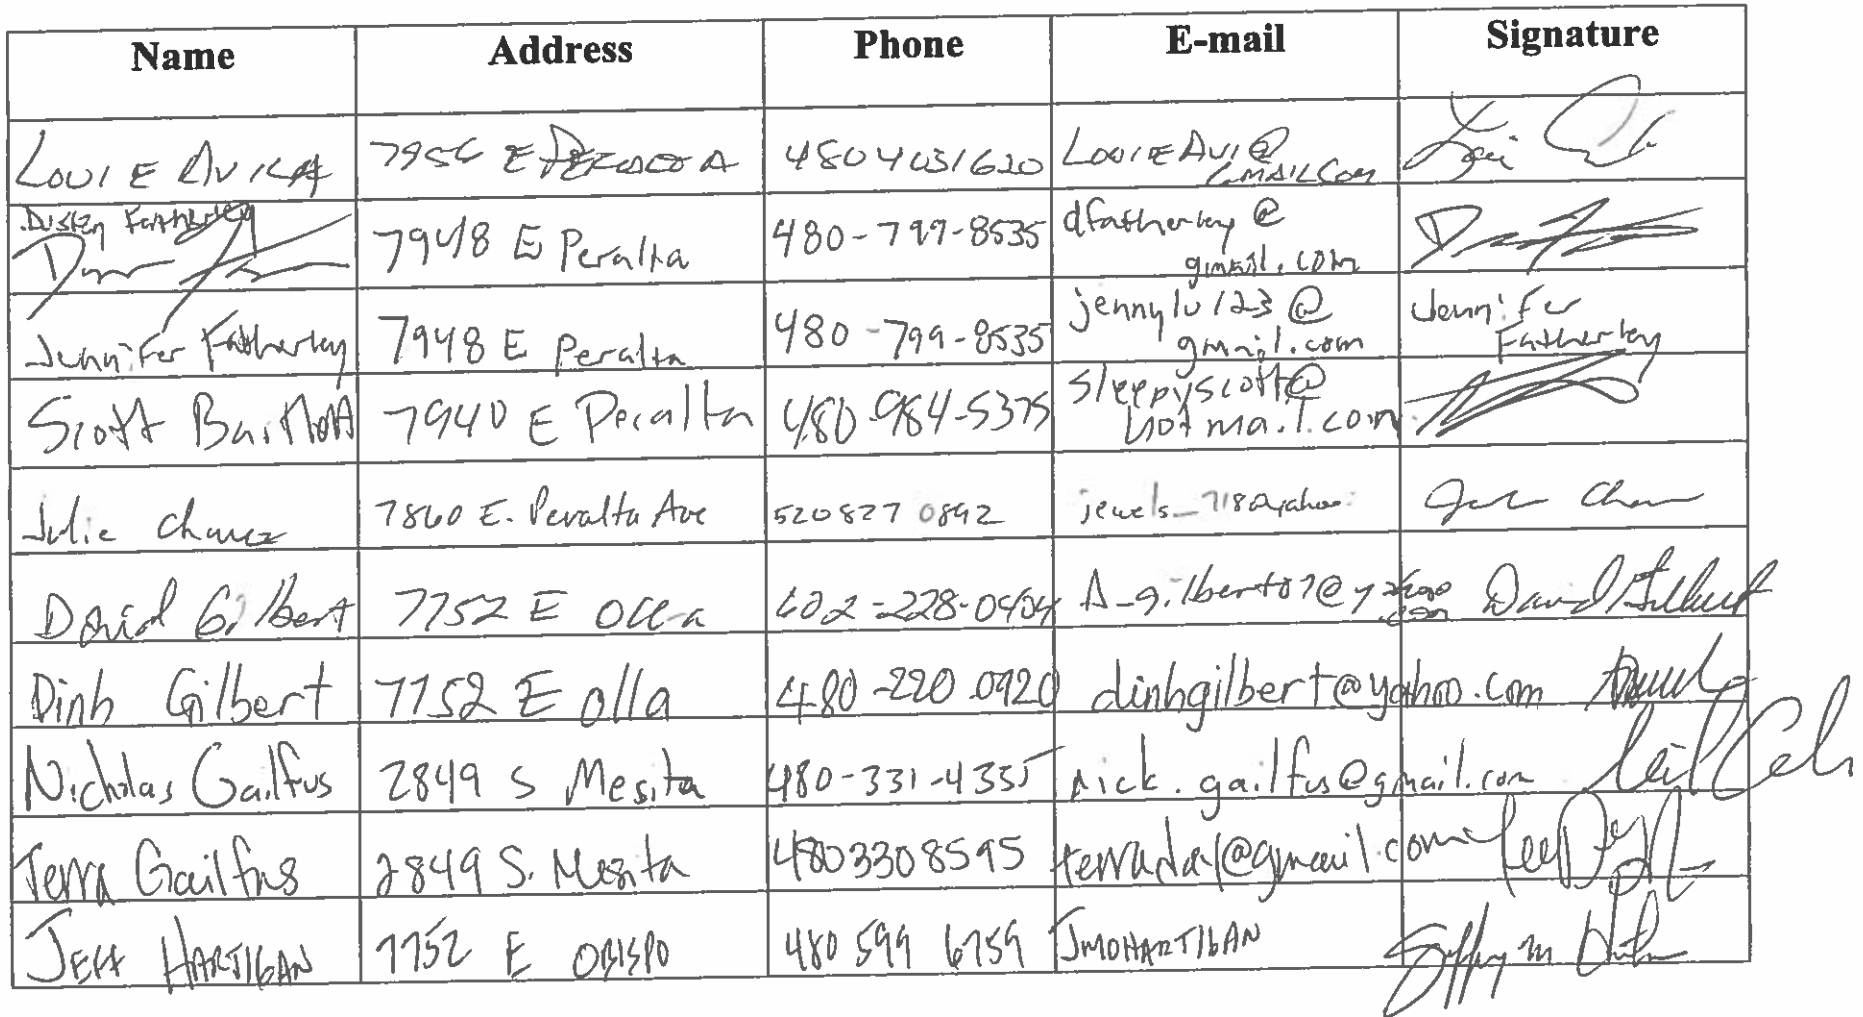 Name Address Phone E-mail Signature
LOUIE AVILA 7956 E 480 4031620 LOUIEAVI@
GMAIL.COM
Fatherley
7948 E Peralta 480-799-8535 dfatherley@
gmail.com
Jennifer Fatherley 7948 E Peralta 480-799-8535 jennylu123@
gmail.com
Jennifer
Fatherley
Scott Bartlett 7940 E Peralta 480-984-5375 sleepyscott@
hotmail.com
Julie Chavez 7860 E. Peralta Ave 520 827 0892 jewels_718@yahoo
David Gilbert 7752 E Olla 602-228-0404 D_gilbert07@yahoo
.com
David Gilbert
Dinh Gilbert 7752 E olla 480-220-0920 dinhgilbert@yahoo.com
Nicholas Gailfus 2849 S Mesita 480-331-4335 nick.gailfus@gmail.com
Terra Gailfus 2849 S. Mesita 4803308595 @gmail.com
JEFF HARTIGAN 7752 E OBISPO 480 599 6759 JMOHARTIGAN